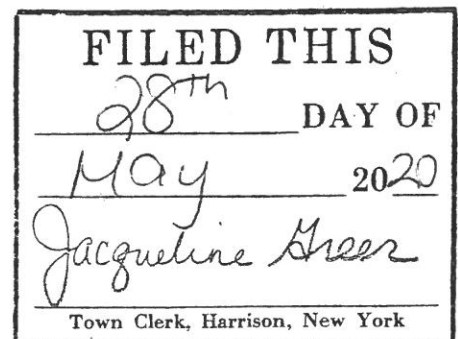 FILED THIS
28th DAY OF
May 2020
Jacqueline Greer
Town Clerk, Harrison, New York